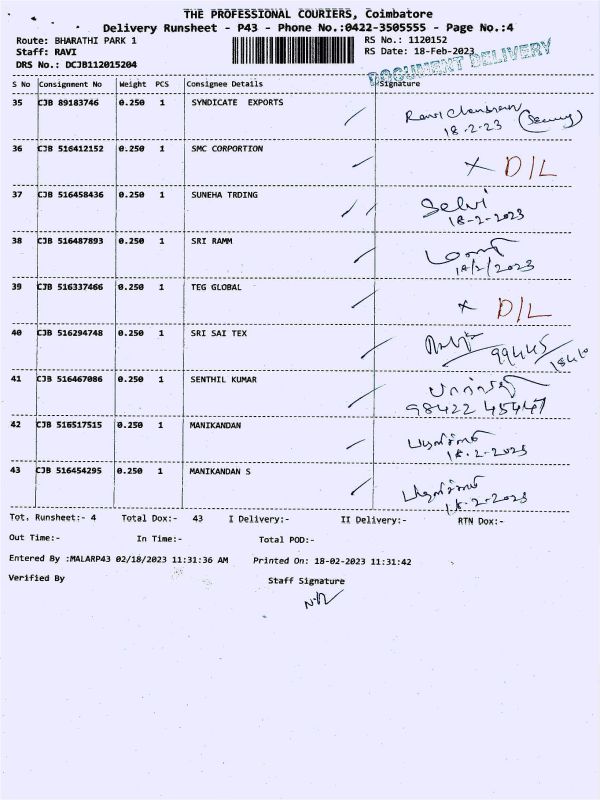 THE PROFESSIONAL COURIERS, Coimbatore
Delivery Runsheet - P43 - Phone No.:0422-3505555 - Page No.:4
Route: BHARATHI PARK 1 RS No.: 1120152
Staff: RAVI RS Date: 18-Feb-2023
DRS No.: DCJB112015204
DOCUMENT DELIVERY
S No Consignment No Weight PCS Consignee Details Signature
35 CJB 89183746 0.250 1 SYNDICATE EXPORTS
18-2-23
36 CJB 516412152 0.250 1 SMC CORPORTION x D/L
37 CJB 516458436 0.250 1 SUNEHA TRDING Selvi
18-2-2023
38 CJB 516487893 0.250 1 SRI RAMM
18/2/2023
39 CJB 516337466 0.250 1 TEG GLOBAL x D/L
40 CJB 516294748 0.250 1 SRI SAI TEX
41 CJB 516467086 0.250 1 SENTHIL KUMAR
98422 45447
42 CJB 516517515 0.250 1 MANIKANDAN
18-2-2023
43 CJB 516454295 0.250 1 MANIKANDAN S
18-2-2023
Tot. Runsheet:- 4 Total Dox:- 43 I Delivery:- II Delivery:- RTN Dox:-
Out Time:- In Time:- Total POD:-
Entered By :MALARP43 02/18/2023 11:31:36 AM Printed On: 18-02-2023 11:31:42
Verified By Staff Signature